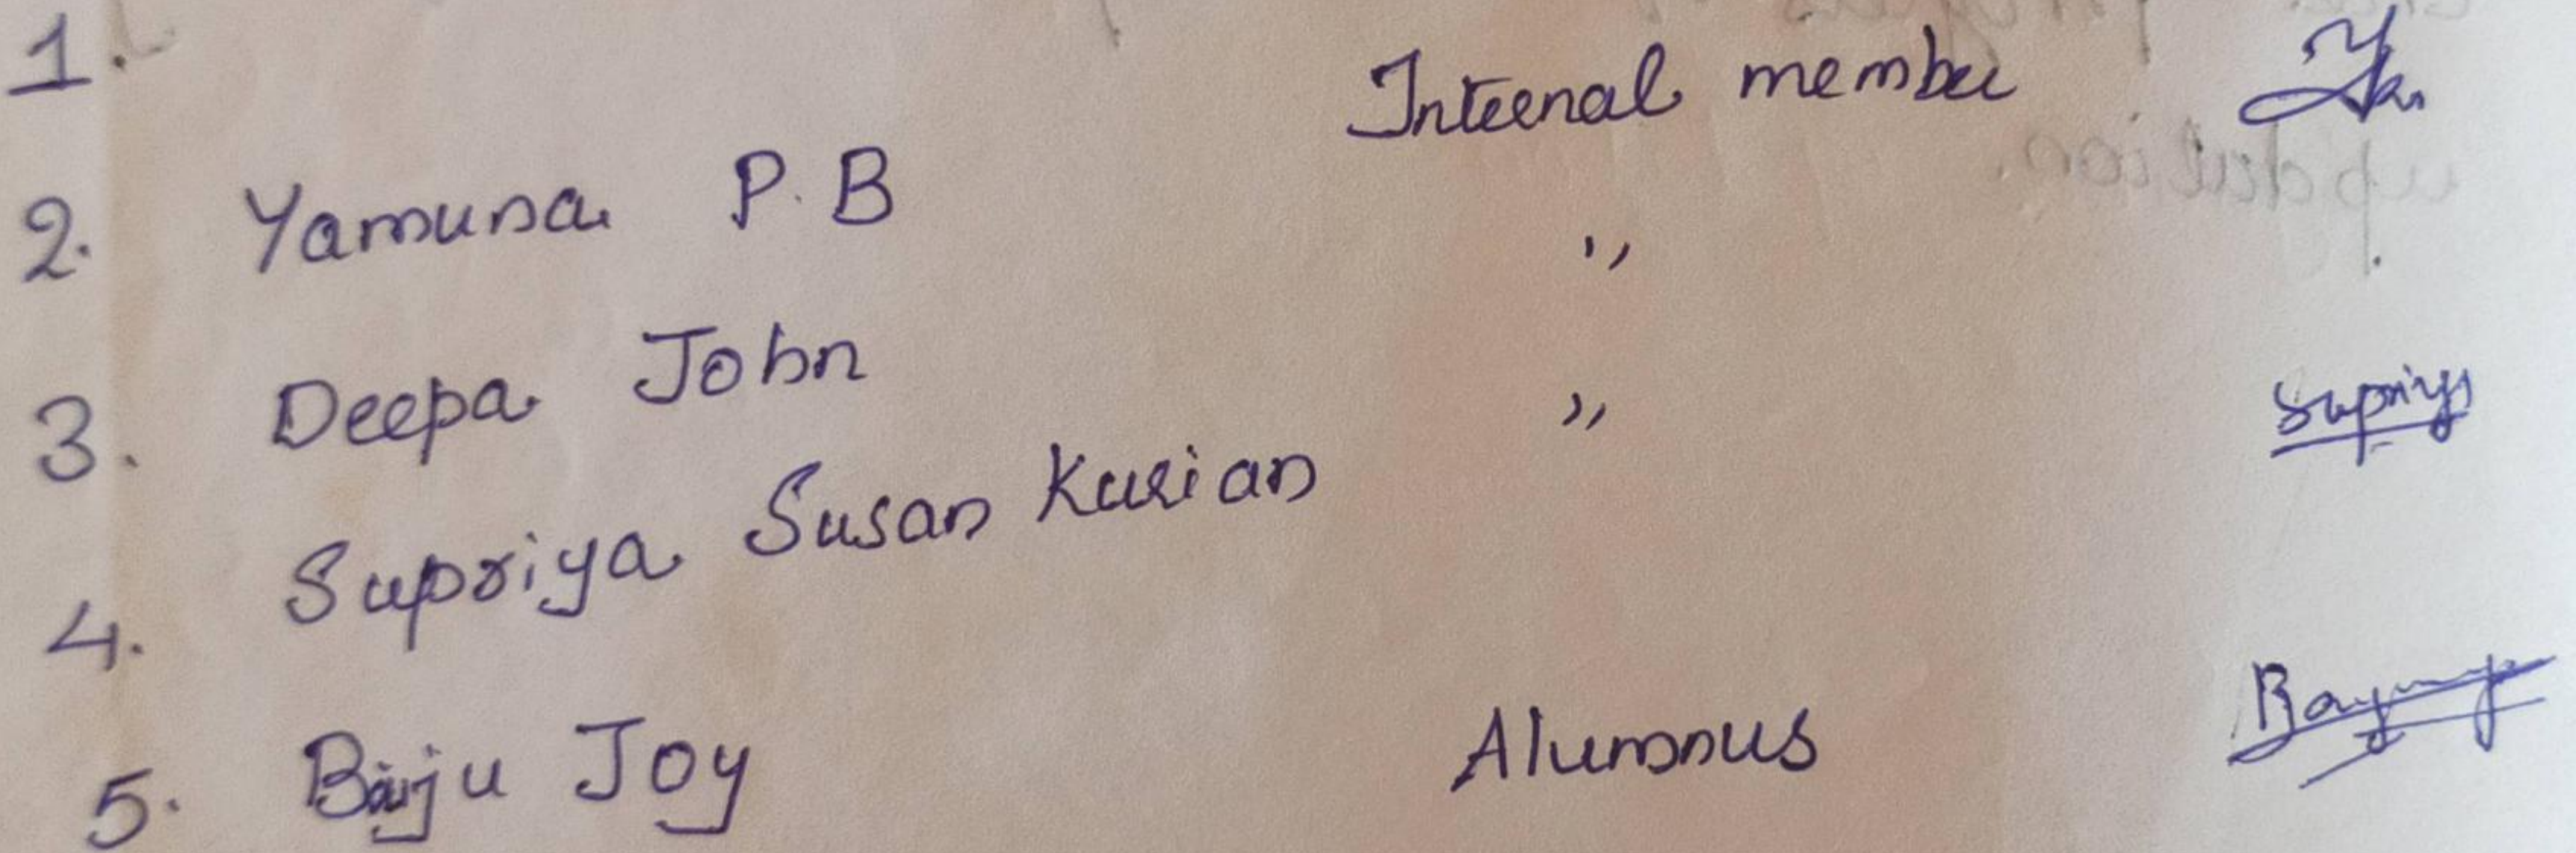 1.
2. Yamuna P. B Internal member
3. Deepa John "
4. Supriya Susan Kurian " Supriya
5. Baiju Joy Alumnus